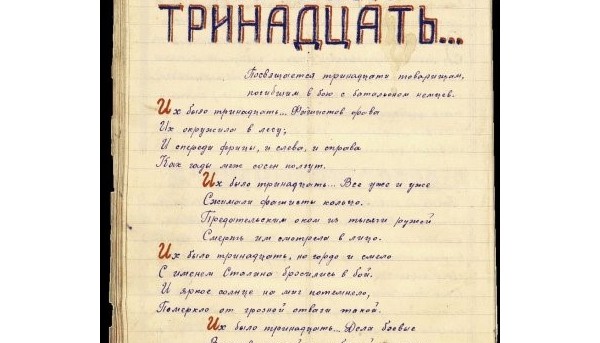 ТРИНАДЦАТЬ...
Посвящается тринадцати товарищам,
погибшим в бою с батальоном немцев.
Их было тринадцать... Фашистов орава
Их окружила в лесу;
И спереди фрицы, и слева, и справа
Как гады меж сосен ползут.
Их было тринадцать... Все уже и уже
Сжимали фашисты кольцо.
Предательским оком из тысячи ружей
Смерть им смотрела в лицо.
Их было тринадцать, но гордо и смело
С именем Сталина бросились в бой.
И яркое солнце на миг потемнело,
Померкло от грозной отваги такой.
Их было тринадцать... Дела боевые